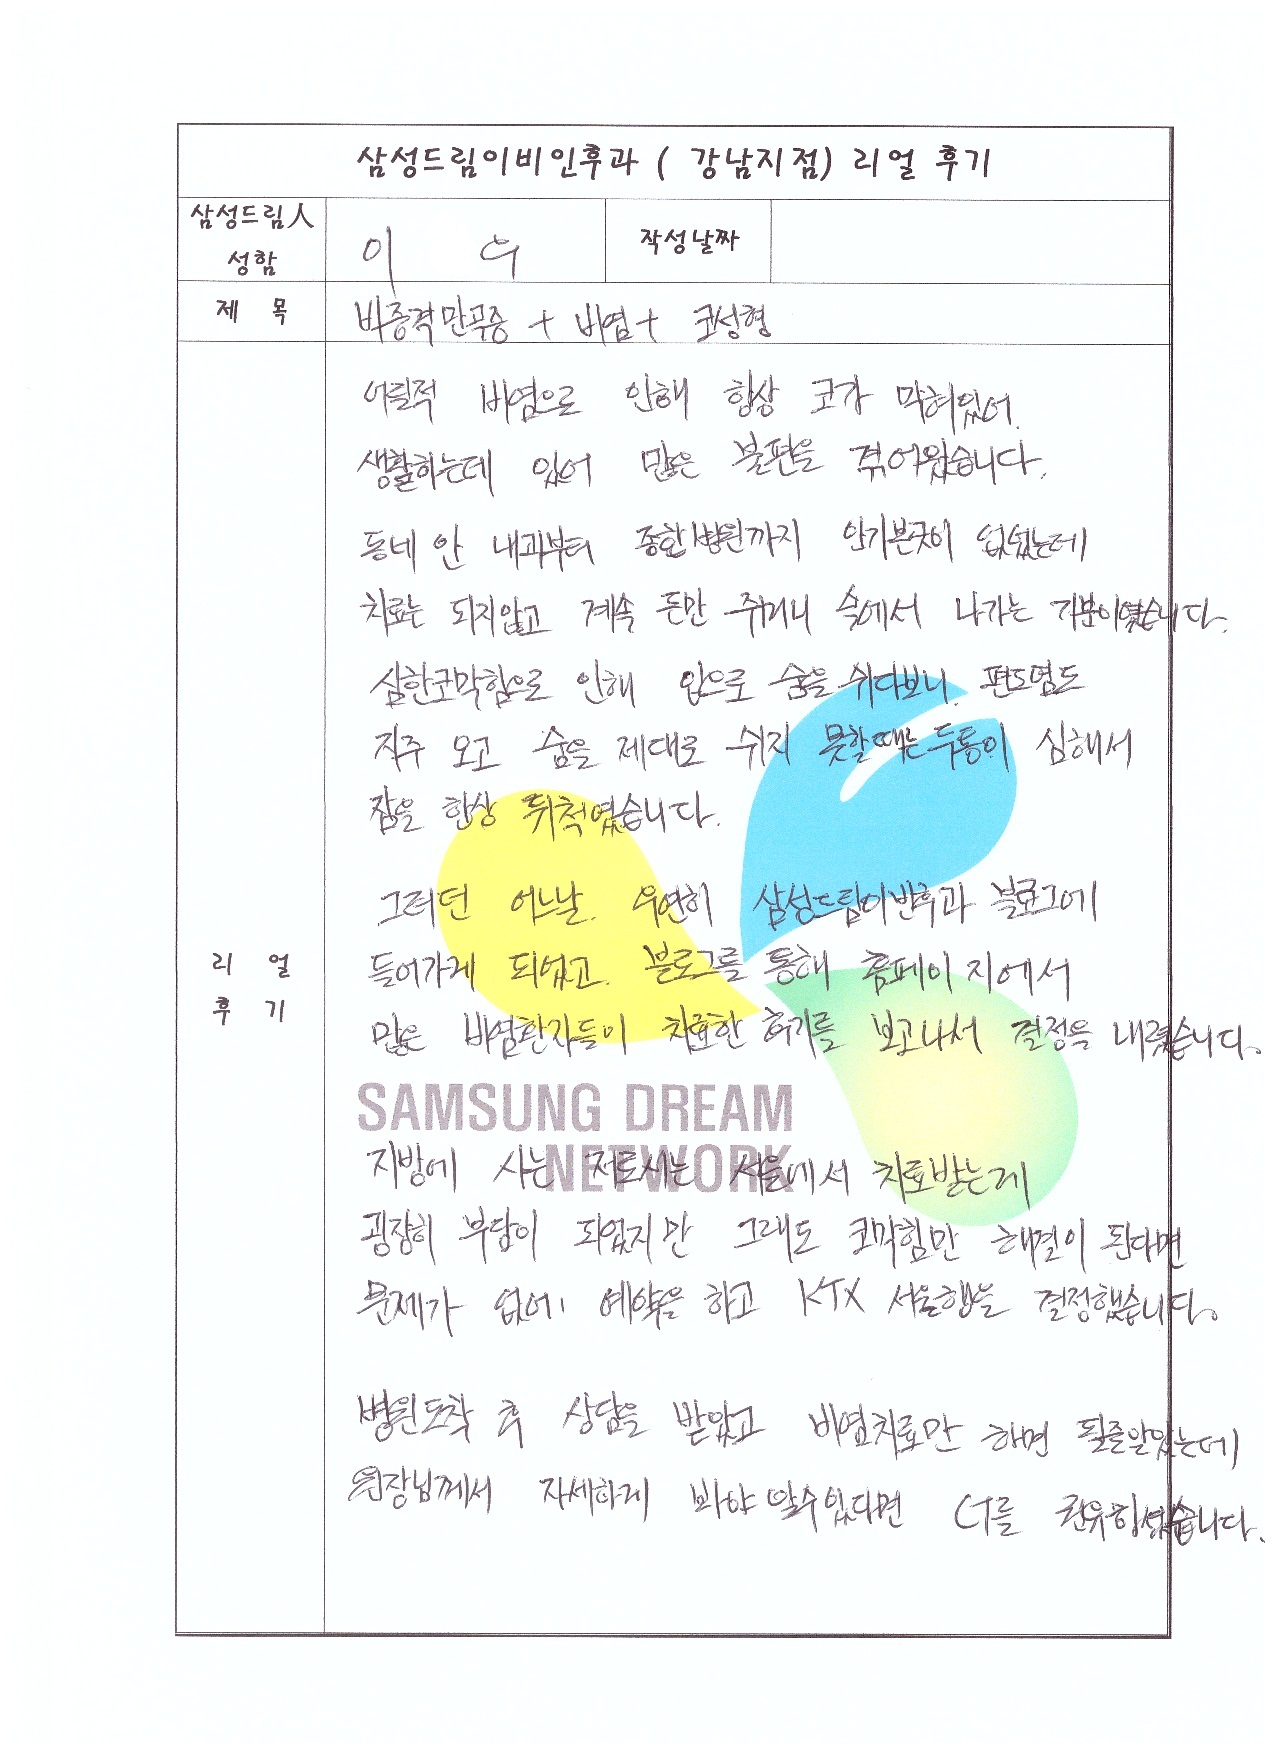 삼성드림이비인후과 ( 강남지점) 리얼 후기
삼성드림人
성함
이 우
작성날짜
제 목
비중격만곡증 + 비염 + 코성형
어릴적 비염으로 인해 항상 코가 막혀있어.
생활하는데 있어 많은 불편을 겪어왔습니다.
동네 안 내과부터 종합병원까지 안가본곳이 없었는데
치료는 되지않고 계속 돈만 주머니 속에서 나가는 기분이였습니다.
심한코막힘으로 인해 입으로 숨을 쉬다보니, 편도염도
자주 오고 숨을 제대로 쉬지 못할때는 두통이 심해서
잠을 항상 뒤척였습니다.
그러던 어느날, 우연히 삼성드림이비인후과 블로그에
들어가게 되었고, 블로그를 통해 홈페이지에서
많은 비염환자들이 치료한 후기를 보고나서 결정을 내렸습니다.
리 얼
후 기
SAMSUNG DREAM
NETWORK
지방에 사는 저로서는 서울에서 치료받는게
굉장히 부담이 되었지만 그래도 코막힘만 해결이 된다면
문제가 없어 예약을 하고 KTX 서울행을 결정했습니다.
병원도착 후 상담을 받았고 비염치료만 하면 될줄알았는데
원장님께서 자세하게 봐야 알수있다면 CT를 권유하셨습니다.